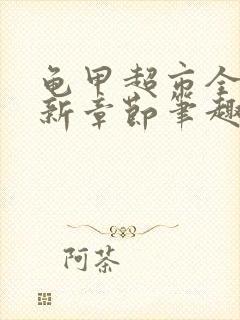 龟甲超市全
新章節笔趣
阿茶